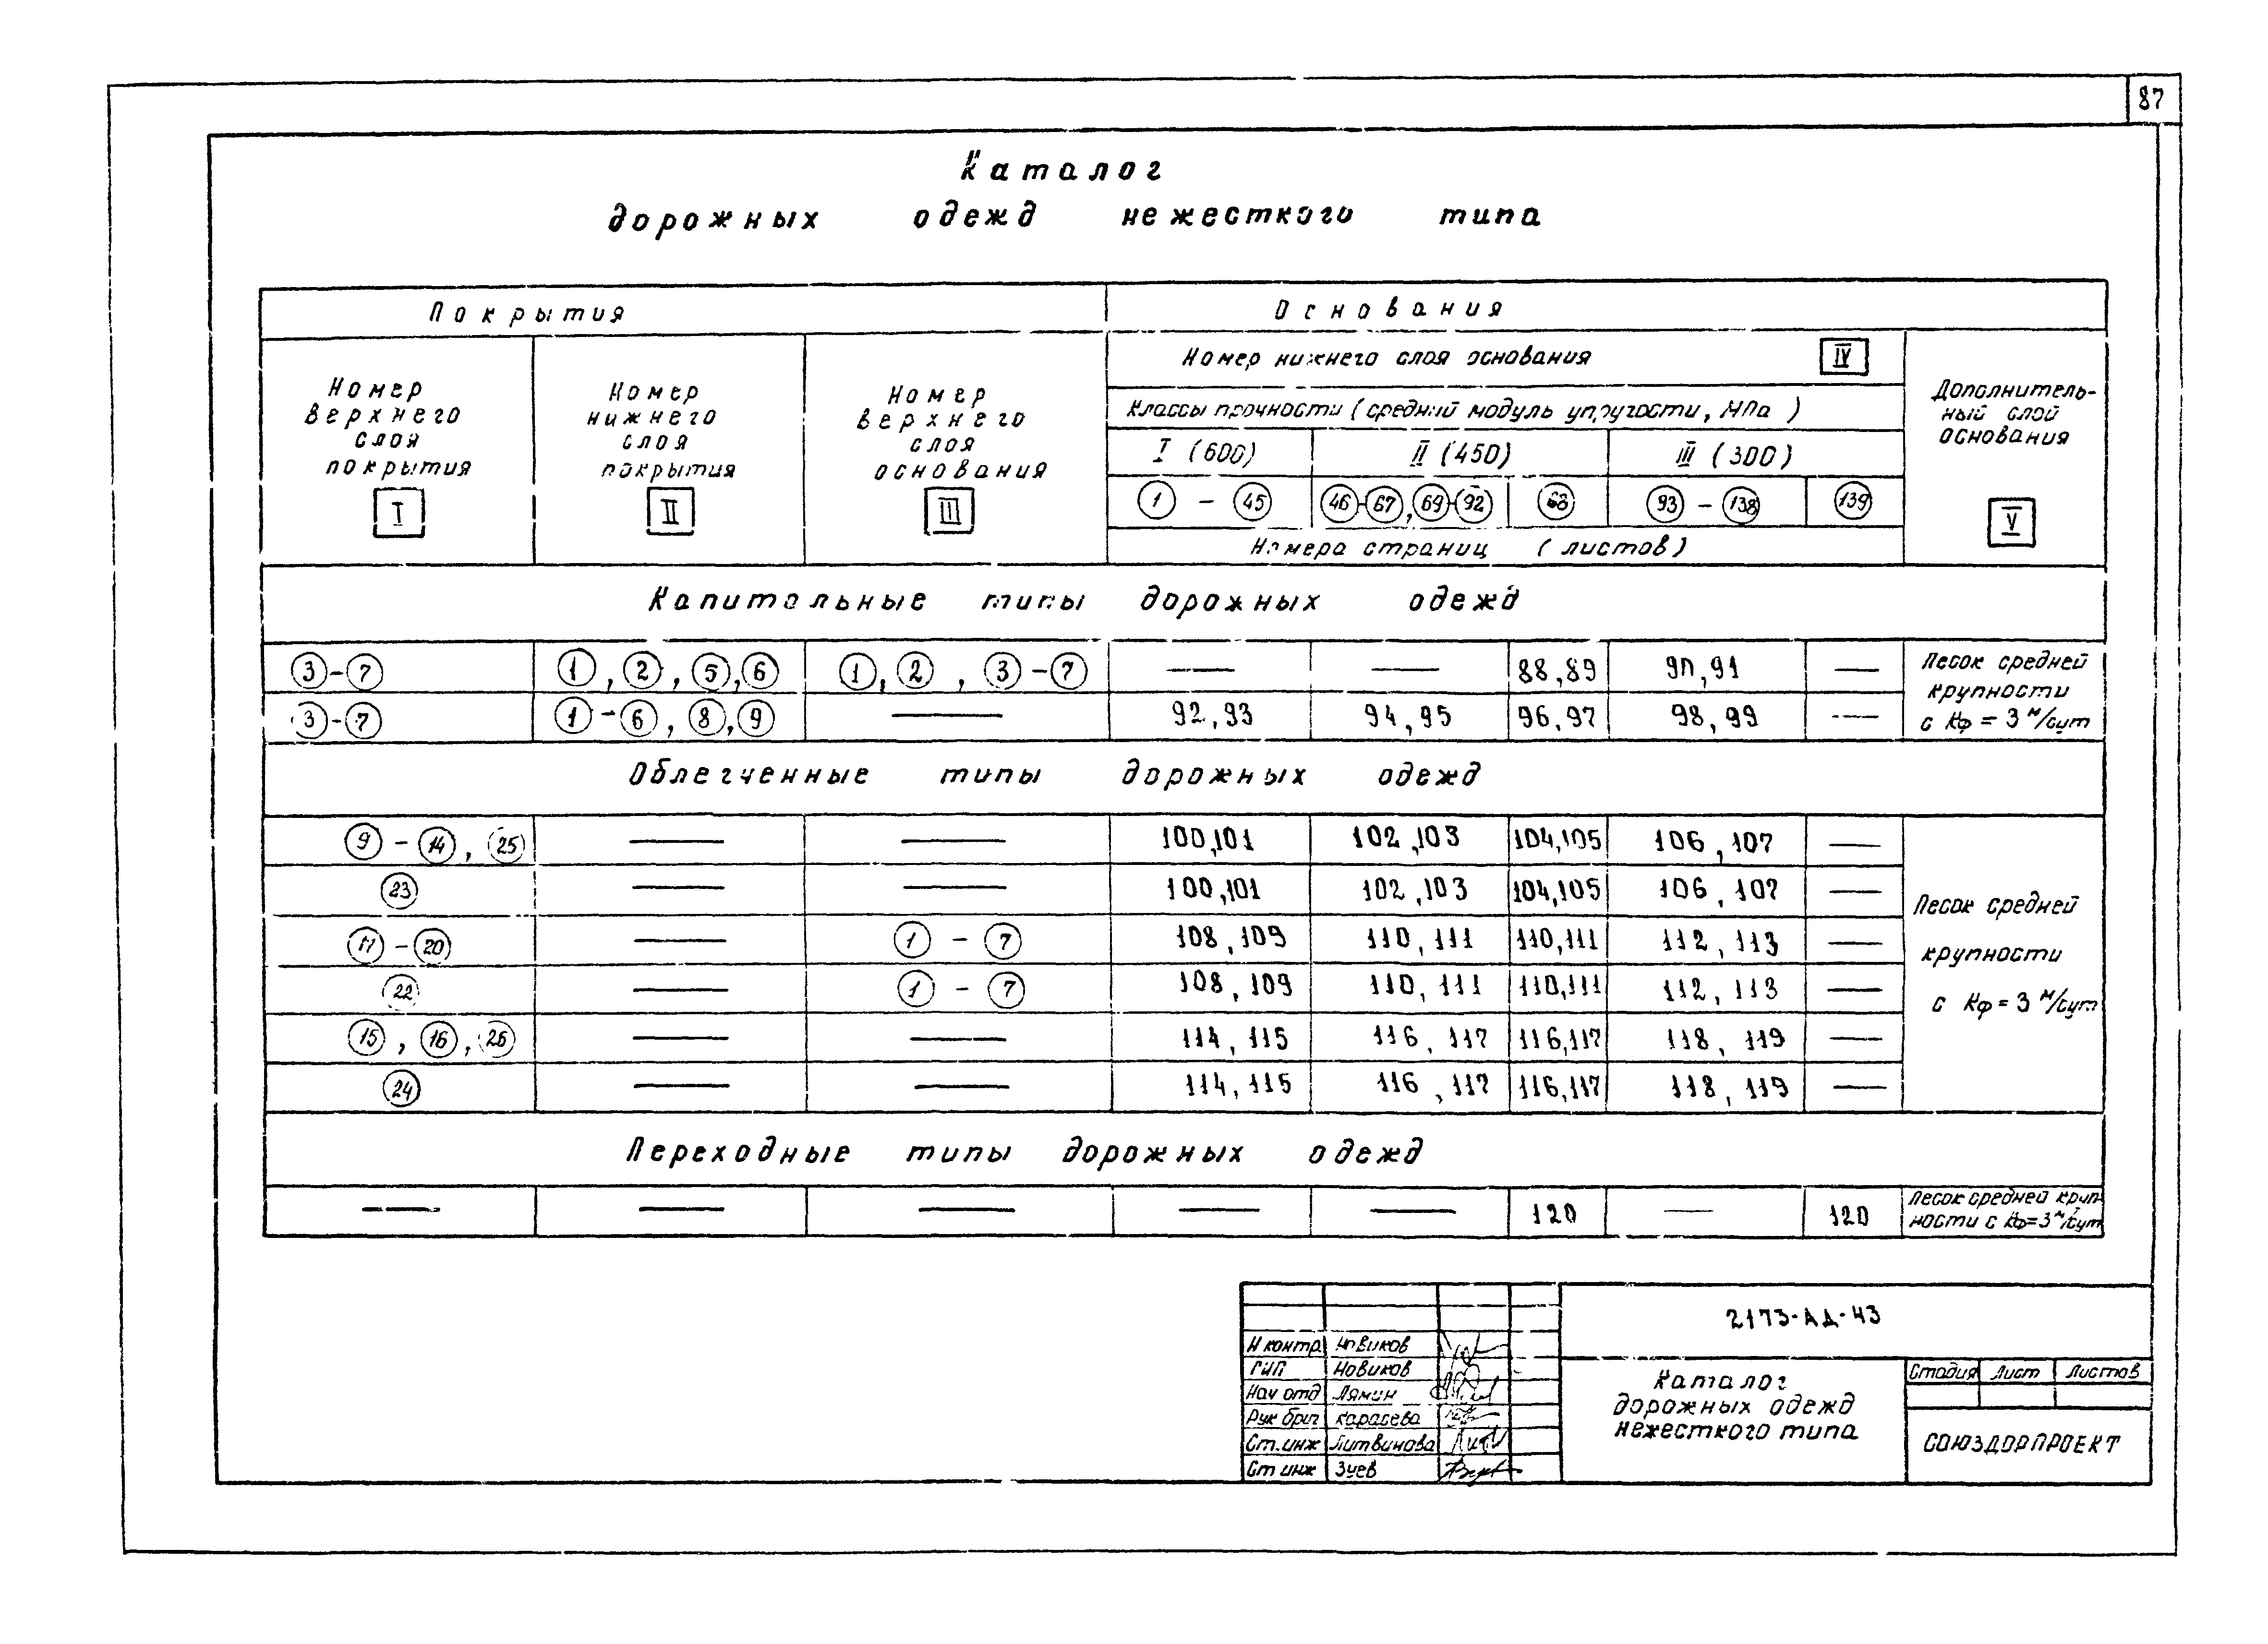 87
Каталог
дорожных одежд нежесткого типа
Покрытия Основания
Номер верхнего слоя покрытия I
Номер нижнего слоя покрытия II
Номер верхнего слоя основания III
Номер нижнего слоя основания IV
Классы прочности (средний модуль упругости, МПа)
I (600) II (450) III (300)
1 - 45 46-67, 69-92 68 93 - 138 139
Номера страниц (листов)
Дополнитель-
ный слой
основания
V
Капитальные типы дорожных одежд
3-7 1, 2, 5, 6 1, 2, 3-7 — — 88,89 90,91 —
3-7 1-6, 8, 9 — 92,93 94,95 96,97 98,99 —
Песок средней
крупности
с Кф = 3 м/сут
Облегченные типы дорожных одежд
9 - 14, 25 — — 100,101 102,103 104,105 106,107 —
23 — — 100,101 102,103 104,105 106,107 —
17-20 — 1 - 7 108,109 110,111 110,111 112,113 —
22 — 1 - 7 108,109 110,111 110,111 112,113 —
15, 16, 26 — — 114,115 116,117 116,117 118,119 —
24 — — 114,115 116,117 116,117 118,119 —
Песок средней
крупности
с Кф = 3 м/сут
Переходные типы дорожных одежд
— — — — — 120 — 120
Песок средней круп-
ности с Кф=3 м/сут
2173-АД-43
Н контр Новиков
ГИП Новиков
Нач отд Лямин
Рук бриг Карасева
Ст.инж Литвинова
Ст инж Зуев
Каталог
дорожных одежд
нежесткого типа
Стадия Лист Листов
СОЮЗДОРПРОЕКТ